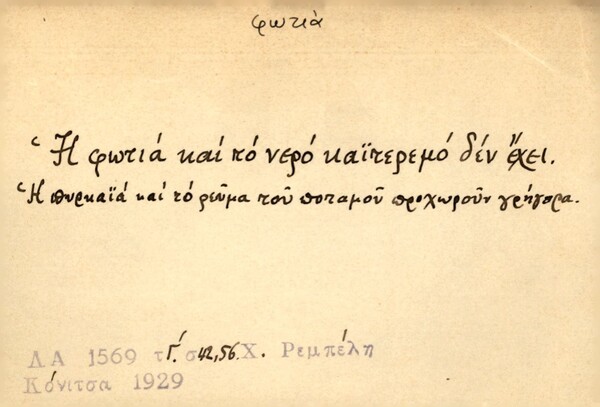 φωτιά
Ἡ φωτιά καί τό νερό καϊτερεμό δέν ἔχει.
Ἡ πυρκαϊά καί τό ρεῦμα τοῦ ποταμοῦ προχωροῦν γρήγορα.
ΛΑ 1569 τ Γ΄. σ 42,56. Χ. Ρεμπέλη
Κόνιτσα 1929